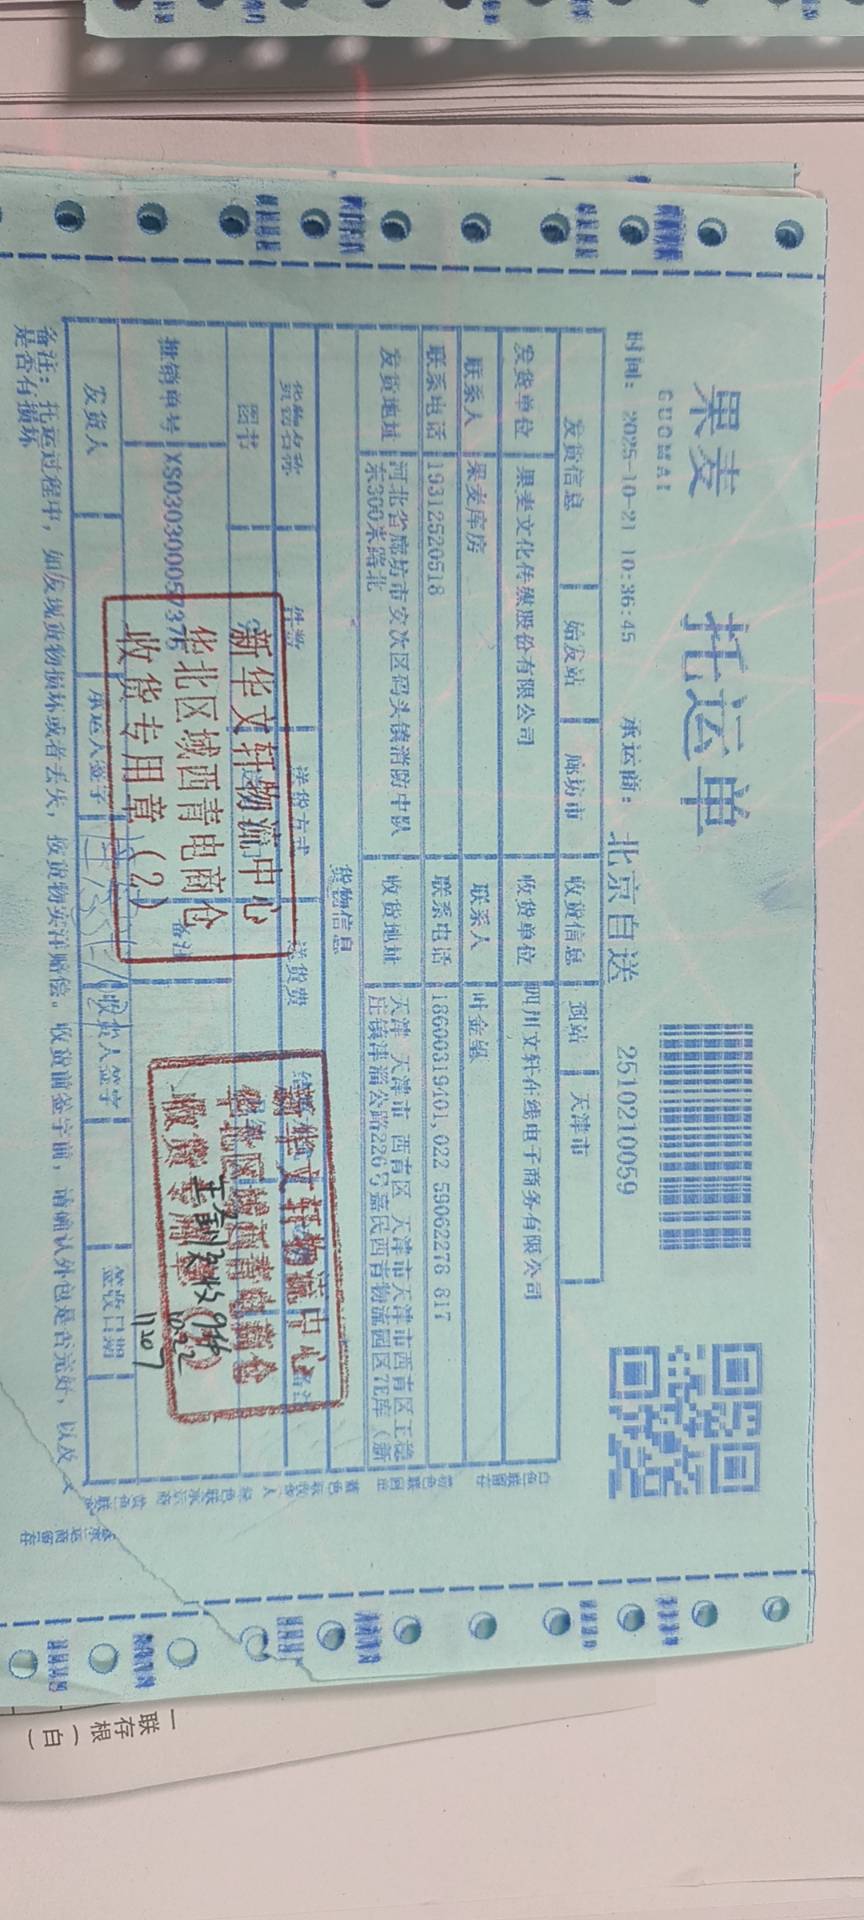 果麦
GUOMAI
托运单
时间: 2025-10-21 10:36:45 承运商: 北京自送 2510210059
发货信息 始发站 廊坊市 收货信息 到站 天津市
发货单位 果麦文化传媒股份有限公司 收货单位 四川文轩在线电子商务有限公司
联系人 果麦库房 联系人 叶金
联系电话 19312520518 联系电话 18600319401,022 59062278 817
发货地址 河北省廊坊市安次区码头镇消防中队东300米路北 收货地址 天津 天津市 西青区 天津市天津市西青区王稳庄镇津淄公路226号嘉民西青物流园区7E库（新
货物信息
货物名称 件数 送货方式 送货费 备注
图书
批销单号 XS030300057375 备注
发货人 承运人签字 收货人签字 签收日期
备注: 托运过程中, 如发现货物损坏或者丢失, 按货物实洋赔偿。收货前签字前, 请确认外包是否完好, 以及
是否有损坏
新华文轩物流中心
华北区域西青电商仓
收货专用章（2）
新华文轩物流中心
华北区域西青电商仓
收货专用章
10.22
11207
白色联留存
粉色联回单
蓝色联收货人
绿色联承运商
联存根（白）